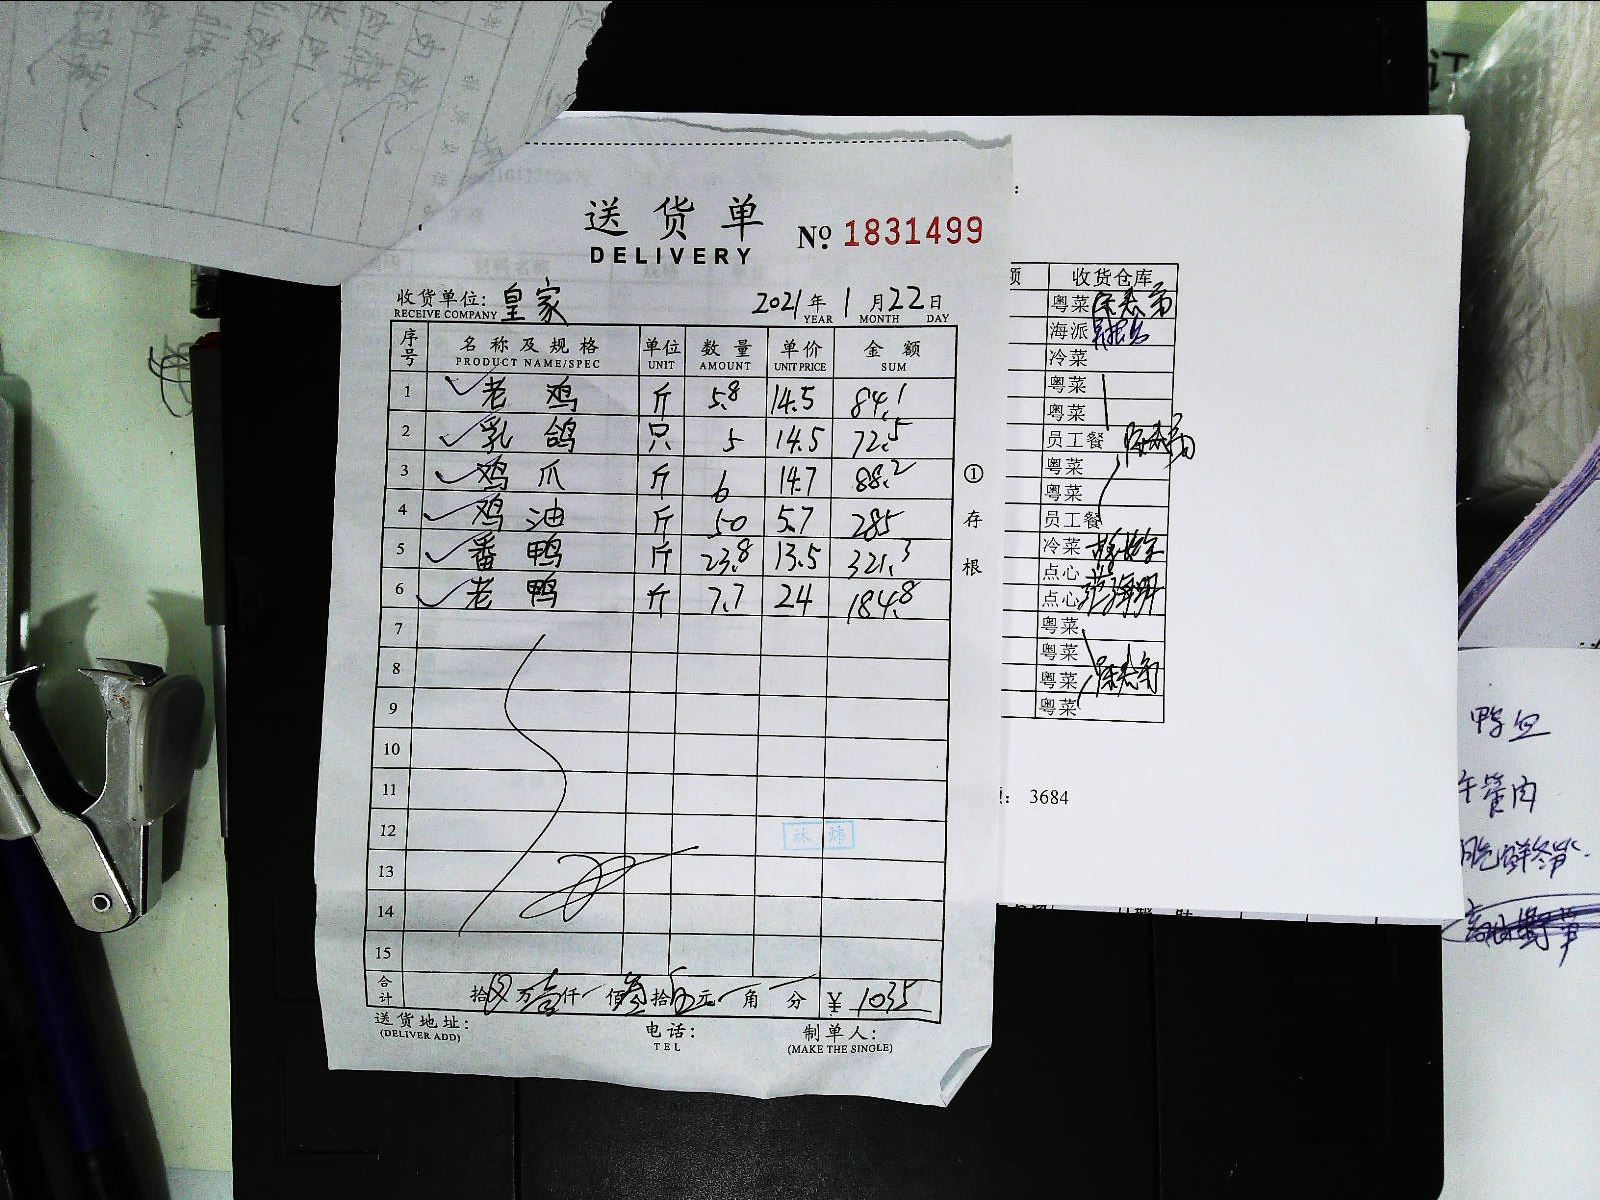 送货单
DELIVERY
№ 1831499
收货单位: 皇家
RECEIVE COMPANY
2021年 1月22日
YEAR MONTH DAY
序号 名称及规格 单位 数量 单价 金额
PRODUCT NAME/SPEC UNIT AMOUNT UNIT PRICE SUM
1 老鸡 斤 5.8 14.5 84.1
2 乳鸽 只 5 14.5 72.5
3 鸡爪 斤 6 14.7 88.2
4 鸡油 斤 50 5.7 285
5 番鸭 斤 23.8 13.5 321.3
6 老鸭 斤 7.7 24 184.8
7
8
9
10
11
12
13
14
15
合计 拾 万壹仟 佰叁拾伍元 角 分 ¥ 1035
送货地址:
(DELIVER ADD)
电话:
TEL
制单人:
(MAKE THE SINGLE)
①存根
额 收货仓库
粤菜
海派
冷菜
粤菜
粤菜
员工餐
粤菜
粤菜
员工餐
冷菜
点心
点心
粤菜
粤菜
粤菜
粤菜
: 3684
鸭血